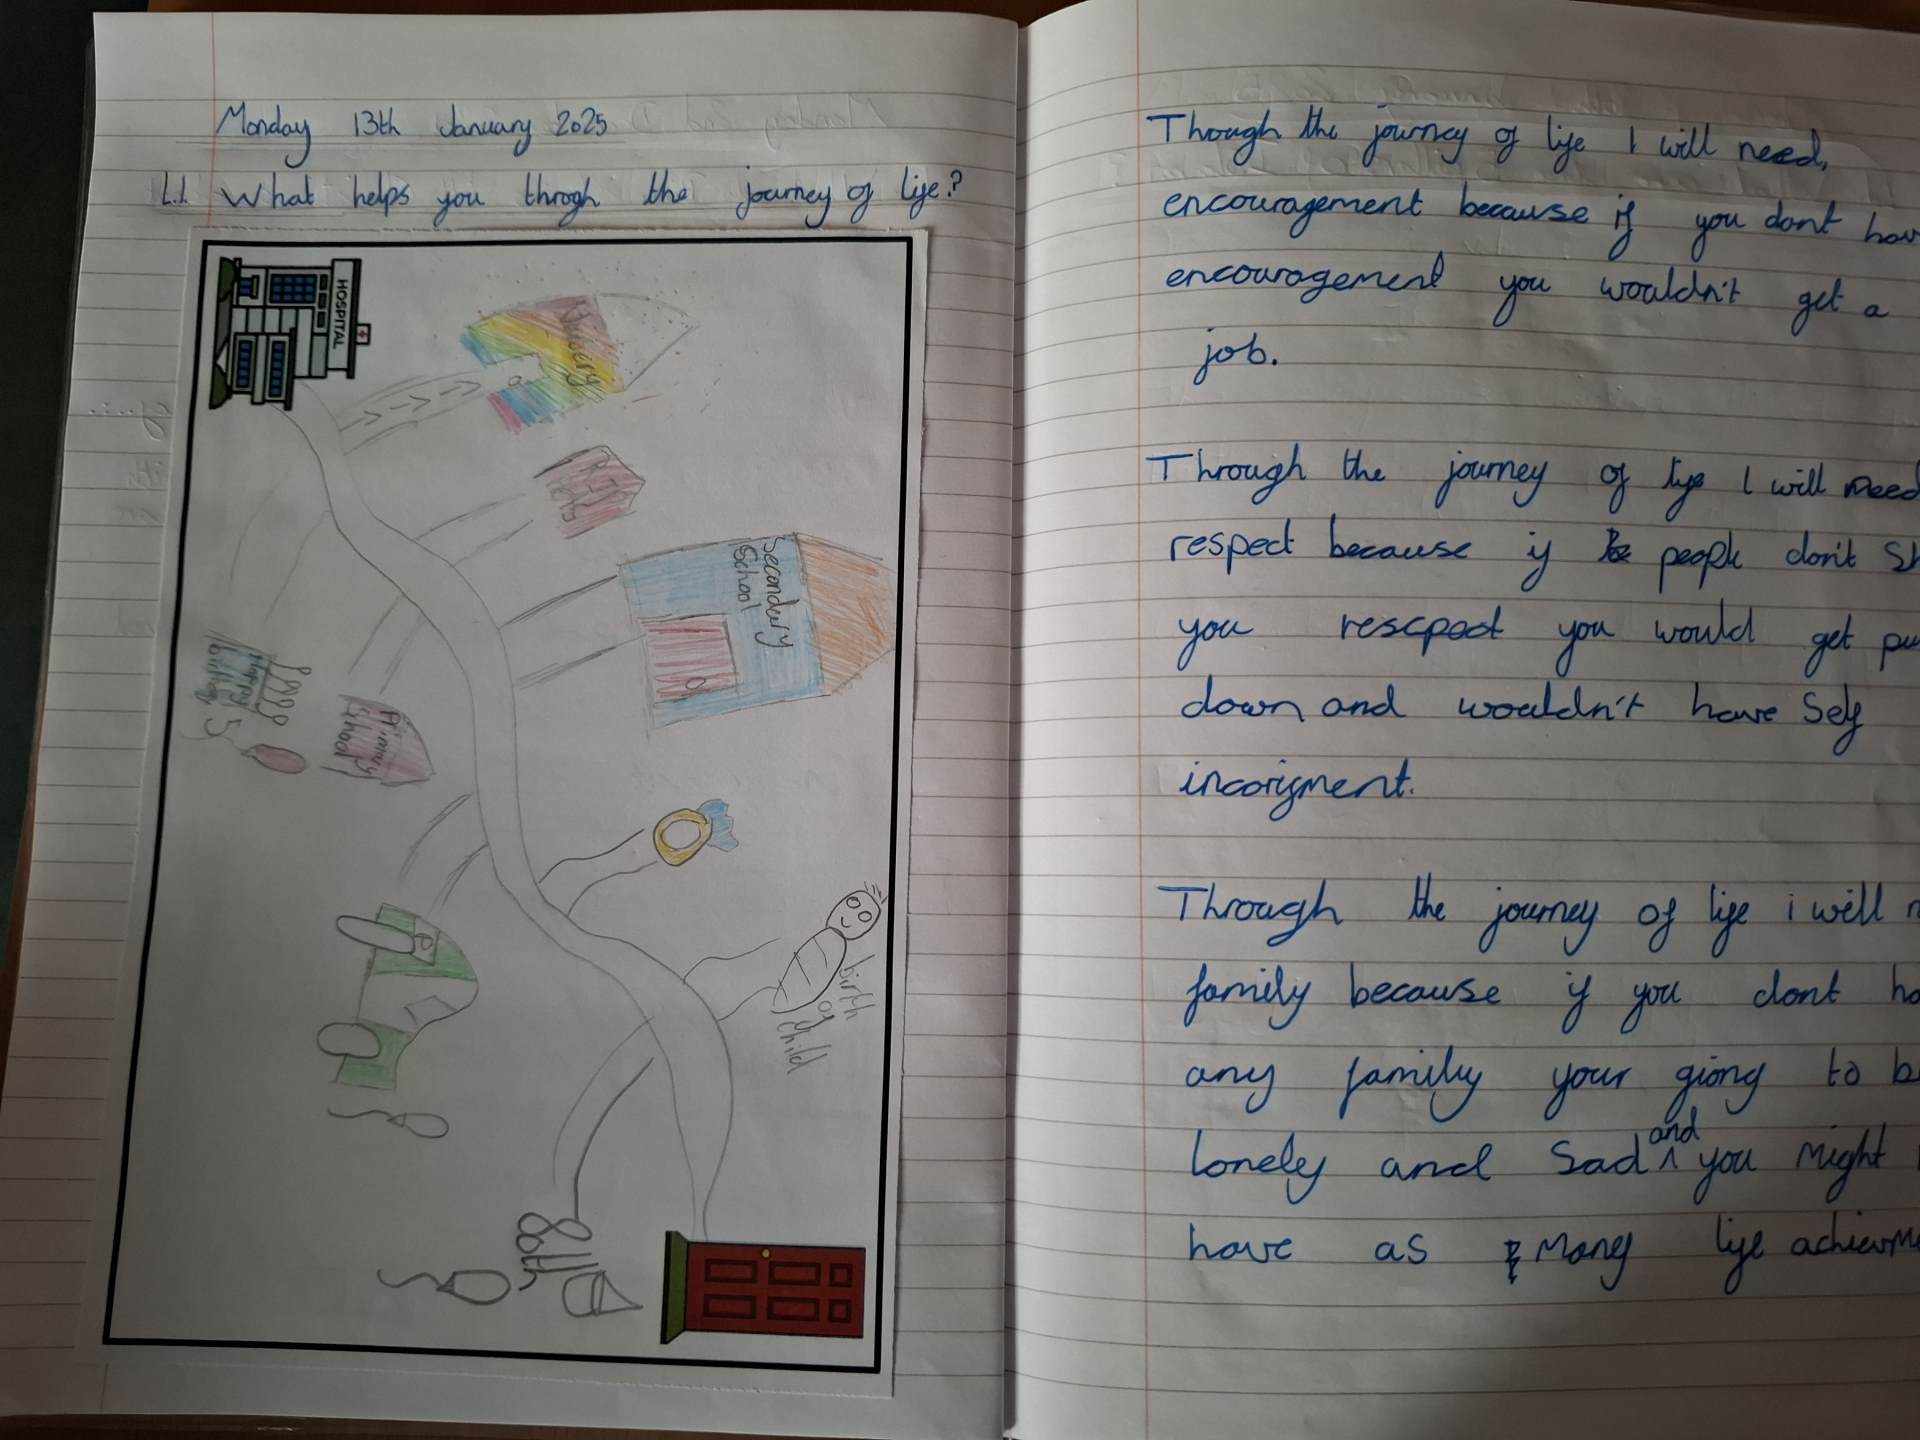 Monday 13th January 2025
L.I. What helps you throgh the journey of life?
HOSPITAL
Nursery
Secondary
School
Happy
birthday 5
Primary
School
birth
of
child
80th
Though the journey of life I will need,
encouragement because if you dont hav
encouragement you wouldn't get a
job.
Through the journey of life I will need
respect because if people don't sh
you rescpect you would get pu
down and wouldn't have Self
incorigment.
Through the journey of life i will n
family because if you dont ha
any family your giong to b
lonely and Sad and you might
have as many life achievme